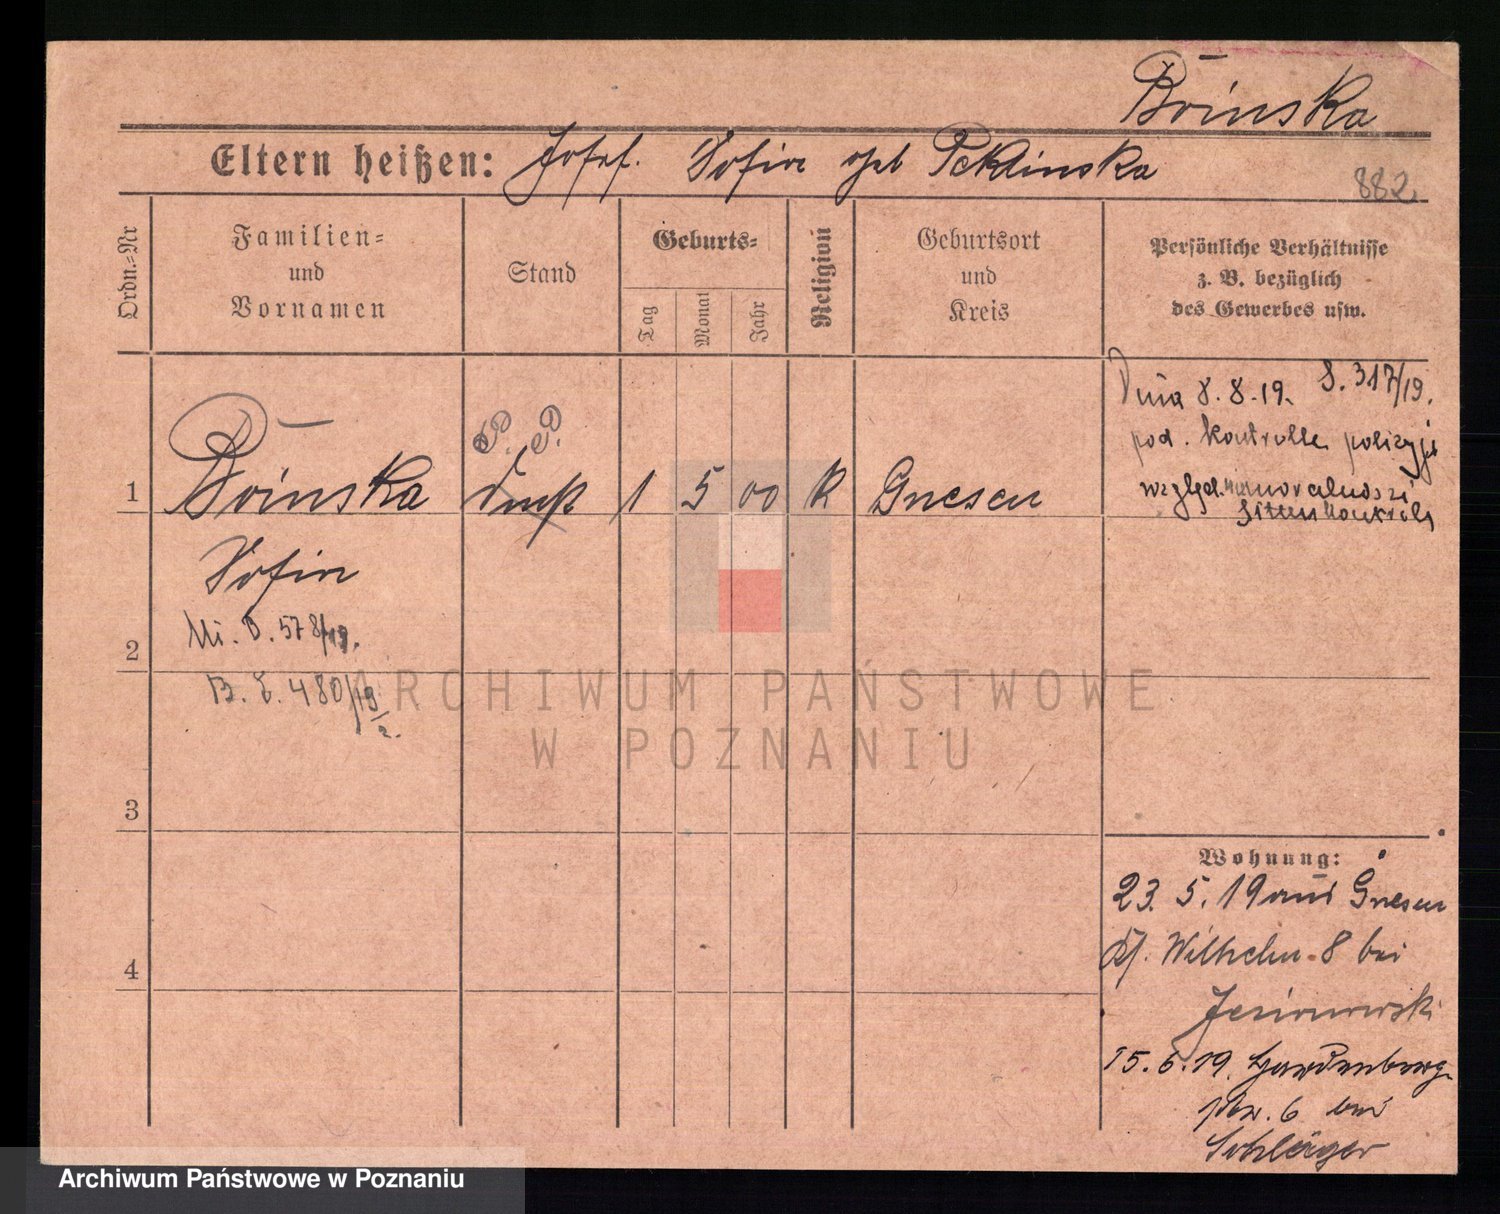 Boinska
Eltern heißen: Josef. Sofie geb Peklinska
882
Ordn.=Nr
Familien=
und
Vornamen
Stand
Geburts=
Tag
Monat
Jahr
Religion
Geburtsort
und
Kreis
Persönliche Verhältnisse
z. B. bezüglich
des Gewerbes usw.
1
Boinska
1 5 00 K Gnesen
Dnia 8.8.19. S. 317/19.
pod. kontrolle policyjn
względ.
Sittenkontrolle
Sofie
2
578/19.
480/19
ARCHIWUM PAŃSTWOWE
W POZNANIU
3
Wohnung:
23. 5. 19 aus Gnesen
Wilhelm. 8 bei
Jezierowski
4
15.6.19. Hardenberg-
6 bei
Schläger
Archiwum Państwowe w Poznaniu